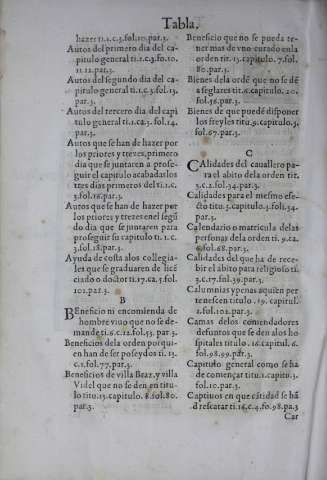 Tabla.
hazer ti.1.c.3.fol.10.par.3.
Autos del primero dia del ca-
pitulo general ti.1.c.3.fo.10.
11.12.par.3.
Autos del segundo dia del ca-
pitulo general ti.1.c.3.fol.13.
par.3.
Autos del tercero dia del capi
tulo general ti.1.ca.3.fol.14.
par.3.
Autos que se han de hazer por
los priores y treze, primero
dia que se juntaren a prose-
guir el capitulo acabados los
tres dias primeros del ti.1.c.
3.fol.16.par.3.
Autos que se han de hazer por
los priores y trezes en el segũ
do dia que se juntaren para
proseguir su capitulo ti.1.c.
3.fol.18.par.3.
Ayuda de costa alos collegia-
les que se graduaren de licẽ
ciado o doctor ti.17.ca.3.fol.
101.par.3.
B
Beneficio ni encomienda de
hombre viuo que no se de-
mande ti.6.c.12.fol.55.par.3.
Beneficios dela orden por qui-
en han de ser poseydos ti.13.
c.1.fol.77.par.3.
Beneficios de villa Braz, y villa
Videl que no se den en titu-
lo titu.13.capitulo.8.fol.80.
par.3.
Beneficio que no se pueda te-
ner mas de vno curado en la
orden tit.13.capitulo.7.fol.
80.par.3.
Bienes dela ordẽ que no se dẽ
a seglares tit.6.capitulo.20.
fol.56.par.3.
Bienes de que puedẽ disponer
los freyles titu.9.capitulo.3.
fol.67.par.3.
C
Calidades del cauallero pa-
ra el abito dela orden tit.
5.c.1.fol.34.par.3.
Calidades para el mesmo efe-
cto titu.5.capitulo.3.foli.34.
par.3.
Calendario o matricula delas
personas dela orden ti.9.ca.
6.fol.68.par.3.
Calidades del que ha de rece-
bir el abito para religioso ti.
5.c.17.fol.39.par.3.
Calumnias y penas a quien per
tenescen titulo.19.capitul.
2.fol.102.par.3.
Camas delos comendadores
defuntos que se den alos ho
spitales titulo.16.capitul.6.
fol.98.99.par.3.
Capitulo general como se ha
de començar titu.1.capitu.3.
fol.10.par.3.
Captiuos en que cãtidad se hã
d rescatar ti.16.c.4.fo.98.pa.3
Car